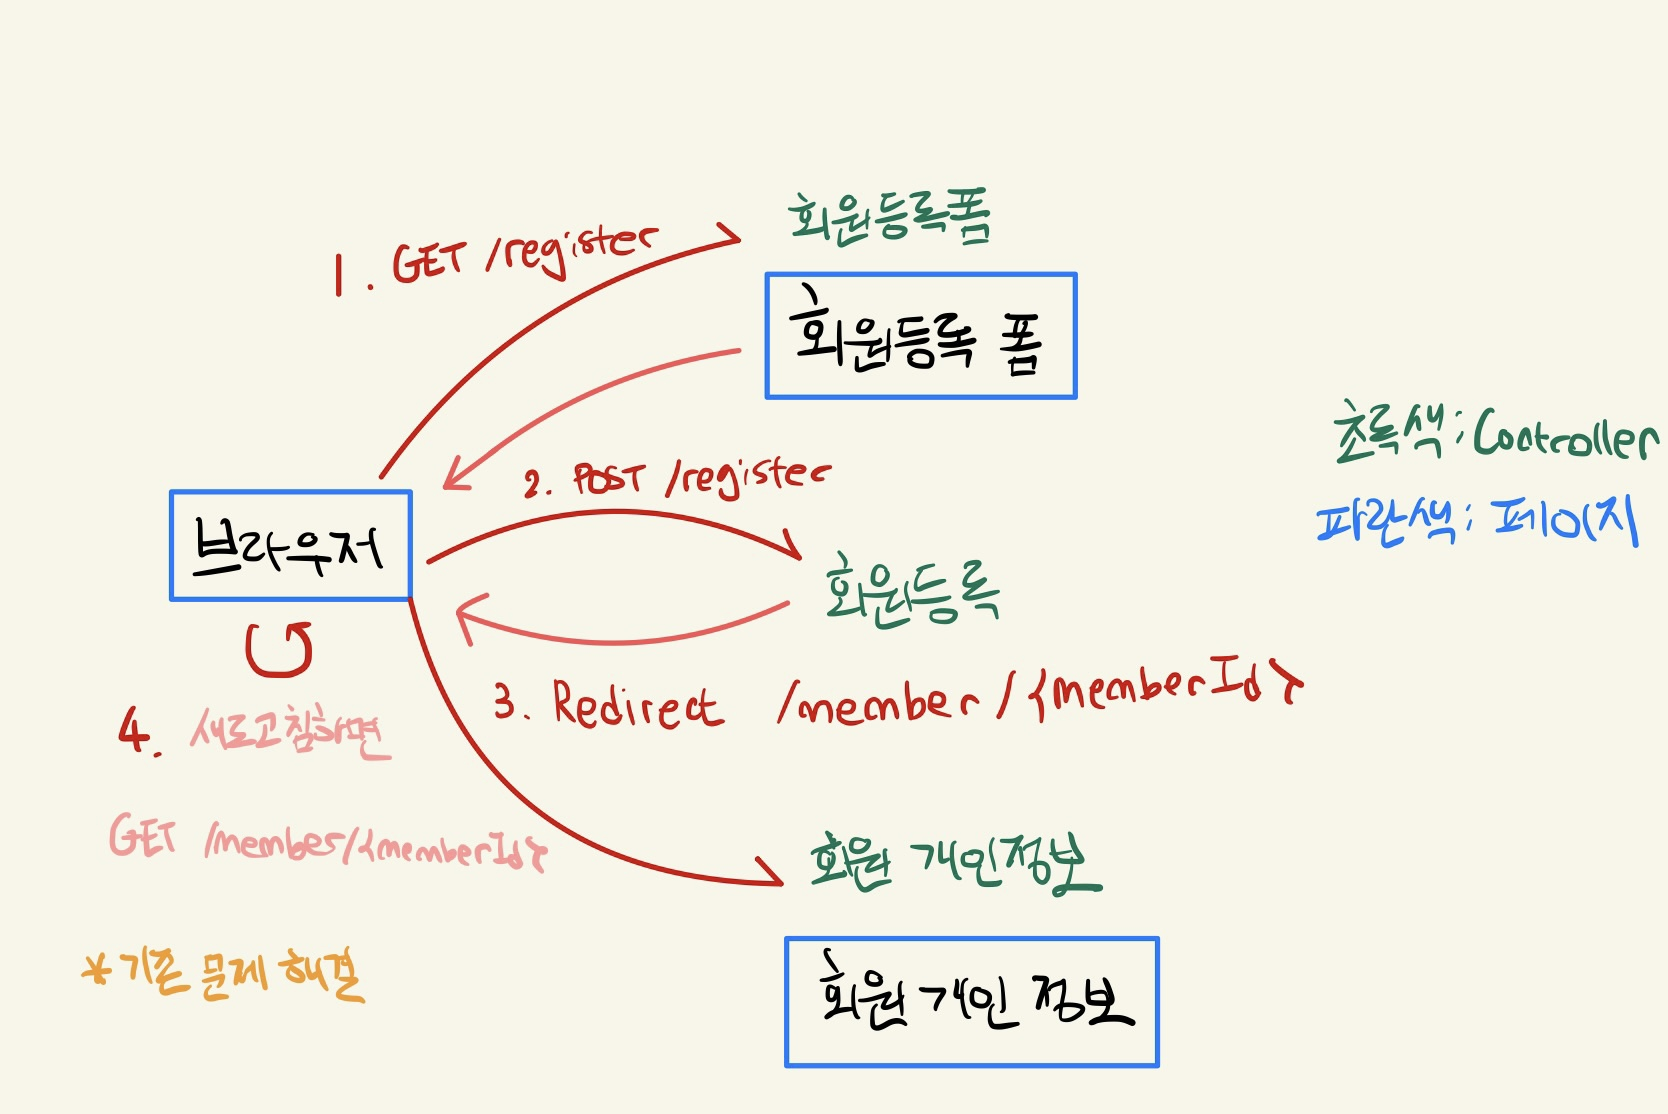 회원등록폼
1. GET /register
회원등록 폼
초록색 : Controller
2. POST /register
파란색 : 페이지
브라우저
회원등록
3. Redirect /member/{memberId}
4. 새로고침하면
GET /member/{memberId}
회원 개인정보
*기존 문제 해결
회원 개인 정보